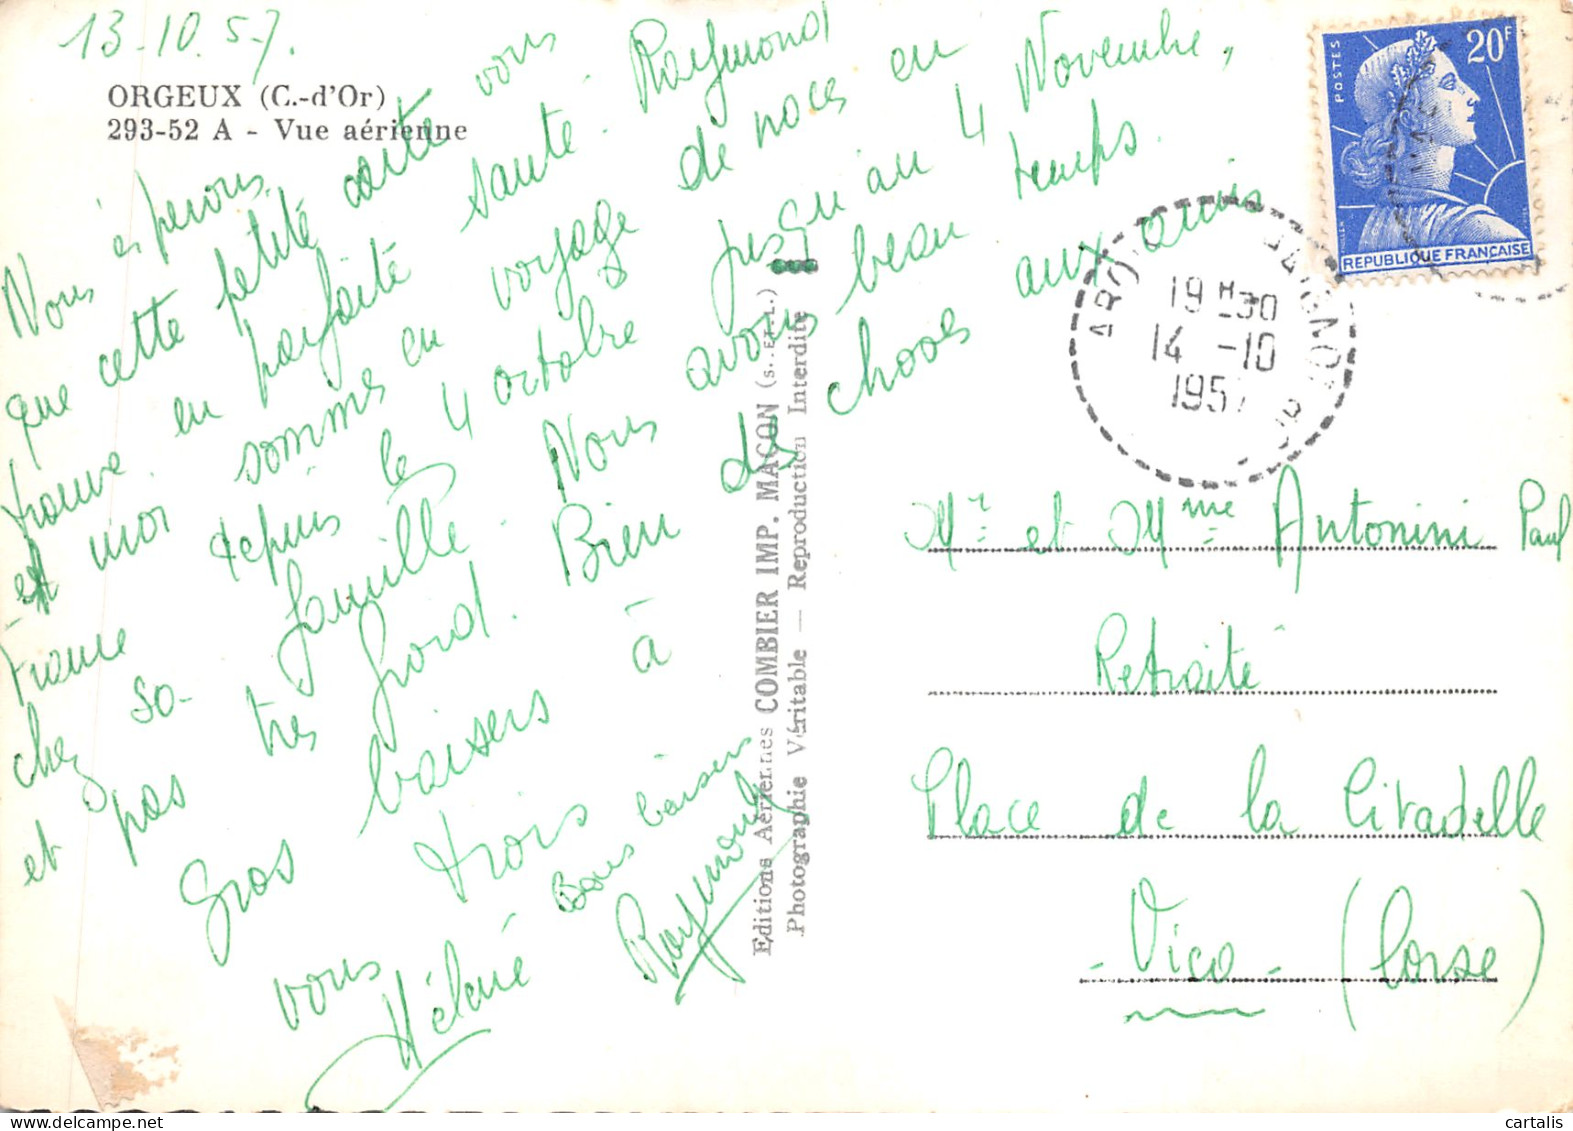 13-10.57.
ORGEUX (C.-d'Or)
293-52 A - Vue aérienne
Nous espérons
que cette petite carte vous
trouve en parfaite santé. Raymond
et moi sommes en voyage de noces en
France depuis le 4 octobre jusqu'au 4 Novembre,
chez sa famille. Nous avons beau temps.
et pas très froid. Bien des choses aux amis
Gros baisers à
vous trois
Hélène
Bons baisers
Raymond
Editions Aériennes COMBIER IMP. MACON (S.-ET-L.)
Photographie Véritable — Reproduction Interdite
POSTES
20F
REPUBLIQUE FRANÇAISE
19 H 30
14 -10
1957
Mr et Mme Antonini Paul
Retraité
Place de la Citadelle
- Vico - (Corse)
cartalis